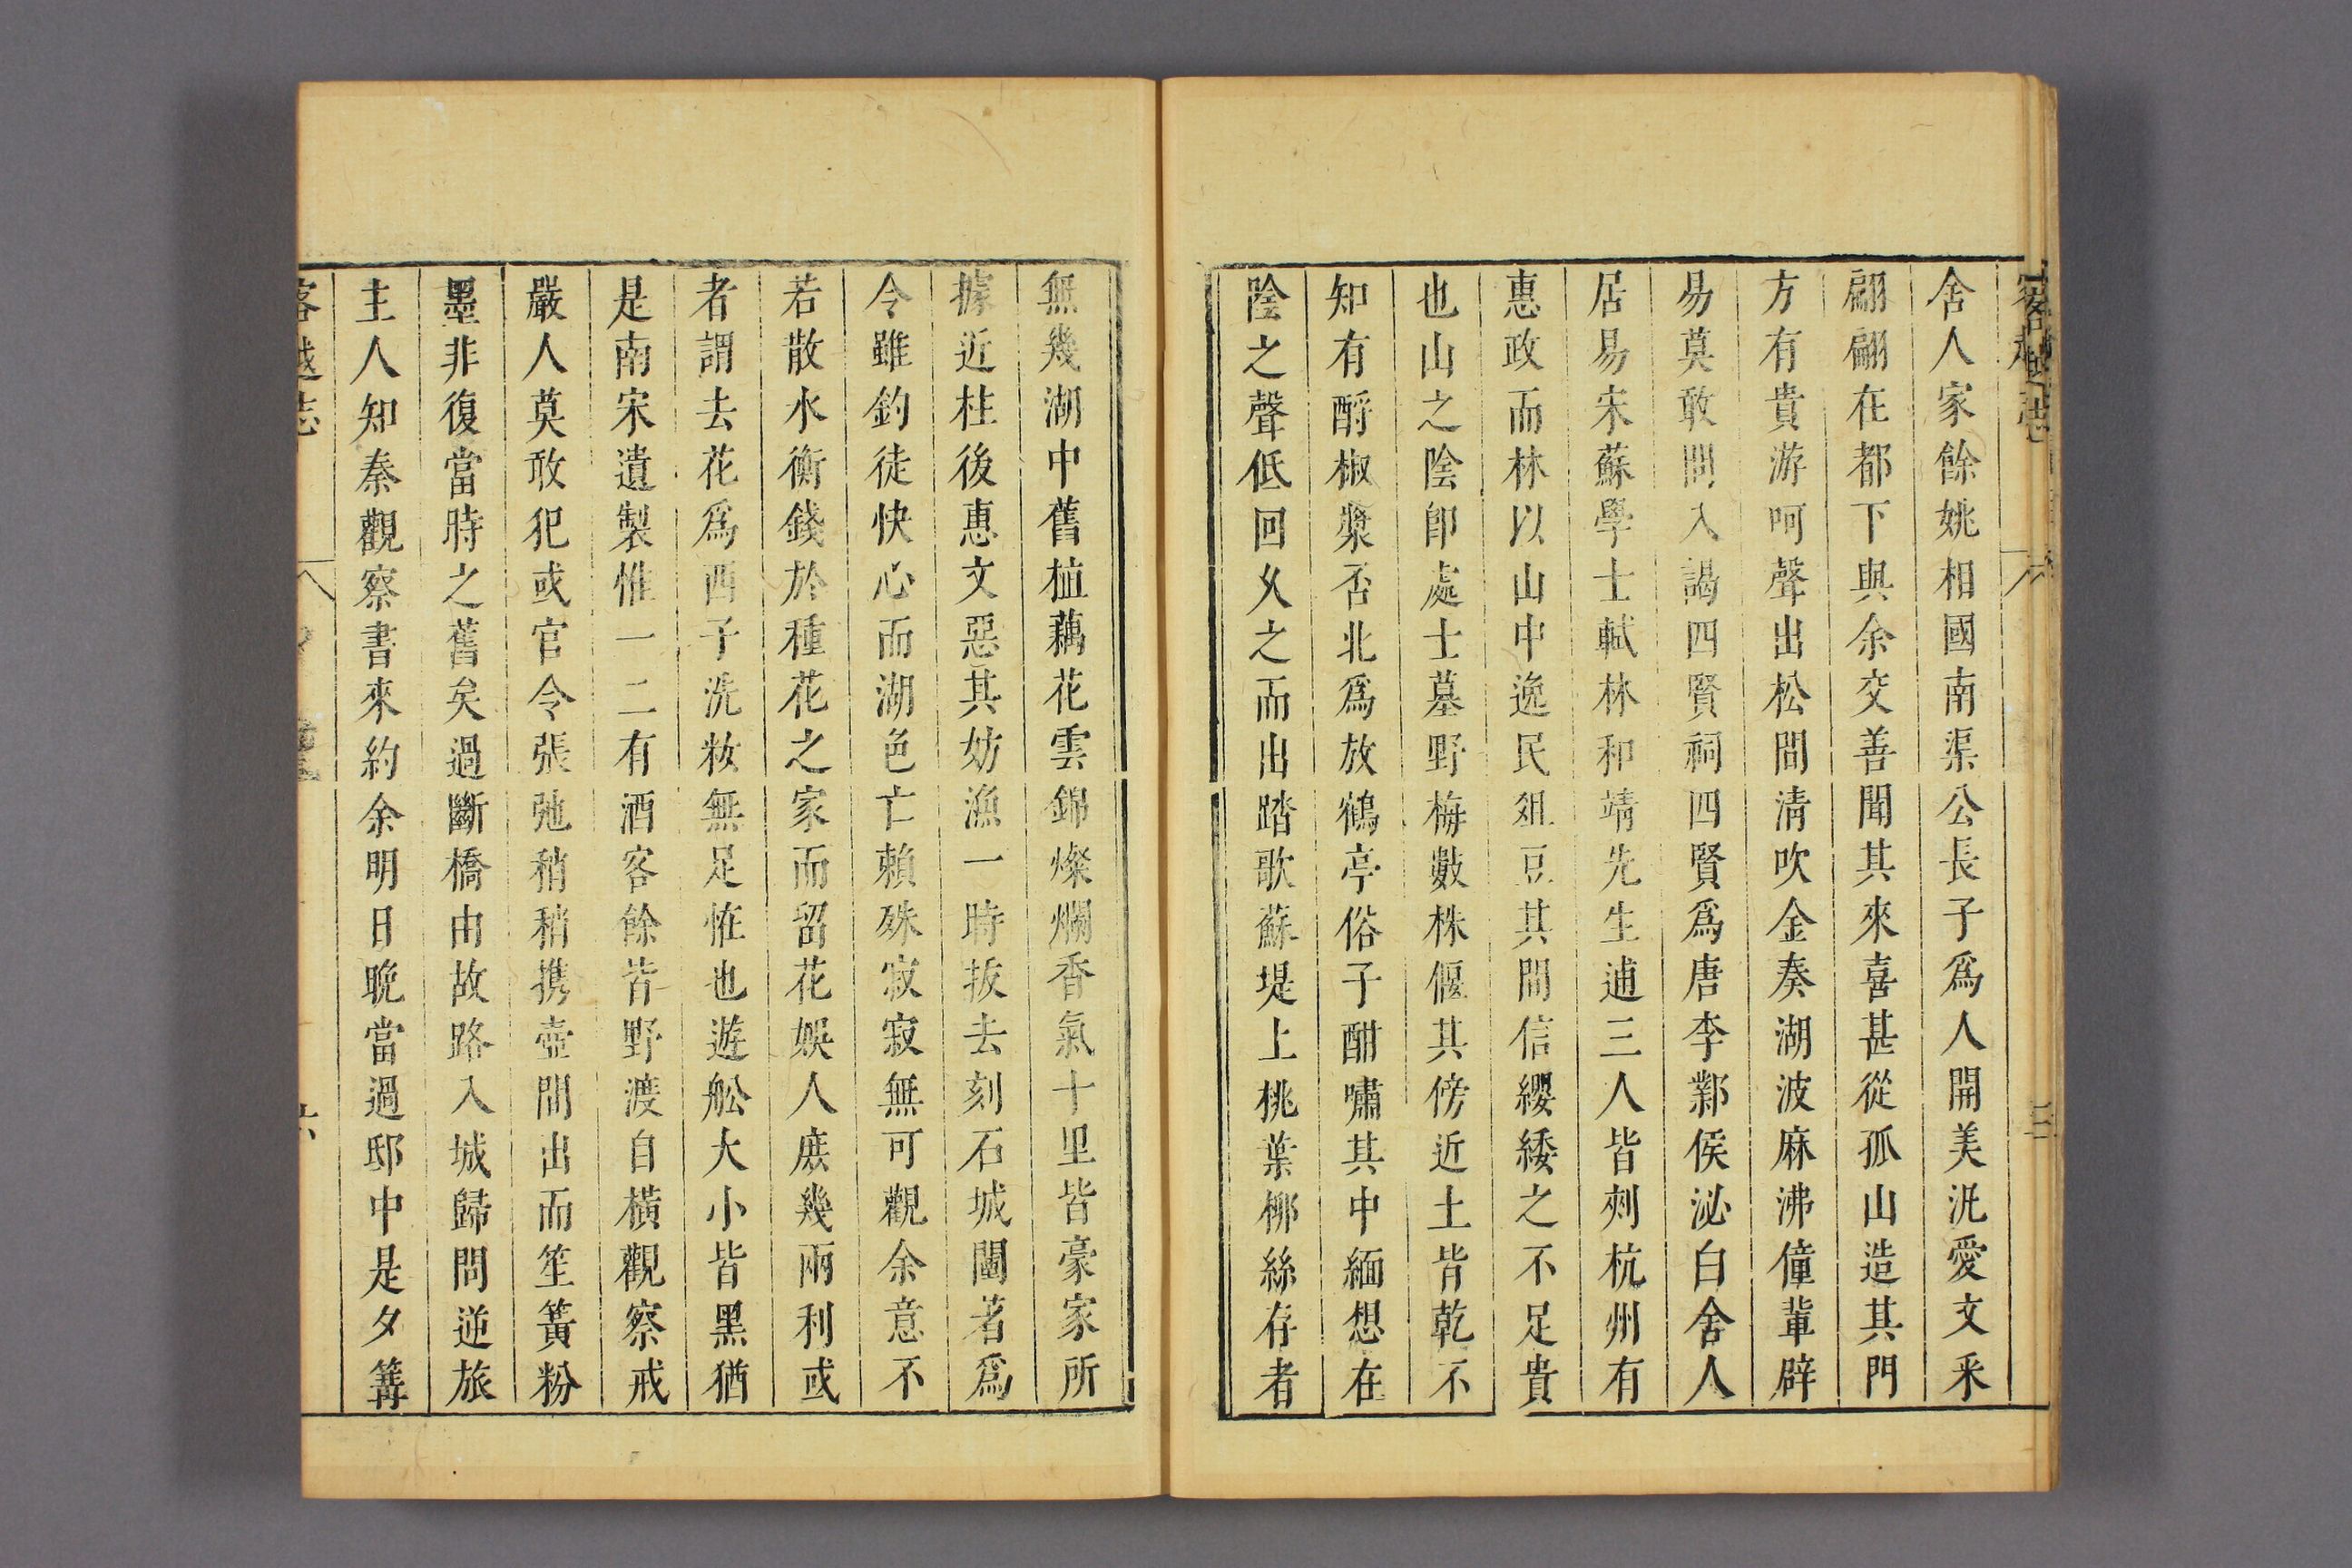 舍人家餘姚相國南渠公長子爲人開美汎愛文采
翩翩在都下與余交善聞其來喜甚從孤山造其門
方有貴游呵聲出松間清吹金奏湖波麻沸僮輩辟
易莫敢問入謁四賢祠四賢爲唐李鄴侯泌白舍人
居易宋蘇學士軾林和靖先生逋三人皆刺杭州有
惠政而林以山中逸民俎豆其間信纓緌之不足貴
也山之陰卽處士墓野梅數株偃其傍近土皆乾不
知有酹椒漿否北爲放鶴亭俗子酣嘯其中緬想在
陰之聲低回久之而出踏歌蘇堤上桃葉柳絲存者
無幾湖中舊植藕花雲錦燦爛香氣十里皆豪家所
據近柱後惠文惡其妨漁一時拔去刻石城闉著爲
令雖釣徒快心而湖色亡賴殊寂寂無可觀余意不
若散水衡錢於種花之家而留花娛人庶幾兩利或
者謂去花爲西子洗妝無足恠也遊舩大小皆黑猶
是南宋遺製惟一二有酒客餘皆野渡自橫觀察戒
嚴人莫敢犯或官令張弛稍稍携壺間出而笙簧粉
墨非復當時之舊矣過斷橋由故路入城歸問逆旅
主人知秦觀察書來約余明日晚當過邸中是夕篝
客越志